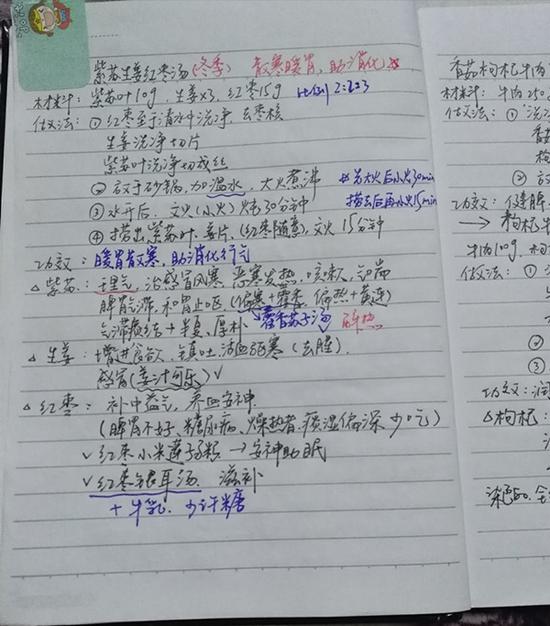 紫苏生姜红枣汤(冬季) 散寒暖胃,助消化
材料:紫苏叶10g,生姜x3,红枣15g 比例2:2:3
做法:①红枣至于清水中洗净,去枣核
生姜洗净切片
紫苏叶洗净切成丝
②放于砂锅,加温水,大火煮沸 先大火后小火30min
③水开后,文火(小火)炖30分钟 捞去后再小火15min
④捞出紫苏叶,姜片,(红枣随意),文火15分钟
功效:暖胃散寒,助消化行气
△紫苏:理气,治感冒风寒 恶寒发热,咳嗽,气喘
脾胃气滞,和胃止呕(偏寒+藿香,偏热+黄连)
气滞痰结+半夏,厚朴 藿香苏子汤 解热
△生姜:增进食欲,镇吐,活血驱寒(去腥)
感冒(姜汁可乐)√
△红枣:补中益气,养血安神
(脾胃不好,糖尿病,燥热者,痰湿偏深少吃)
√红枣小米莲子粥→安神助眠
√红枣银耳汤 滋补
+牛乳,少许糖
香菇枸杞牛肉
材料:牛肉
做法:①洗
②放
功效:健脾
→枸杞
牛肉10g,枸
做法:①
②
③
功效:润
△枸杞: